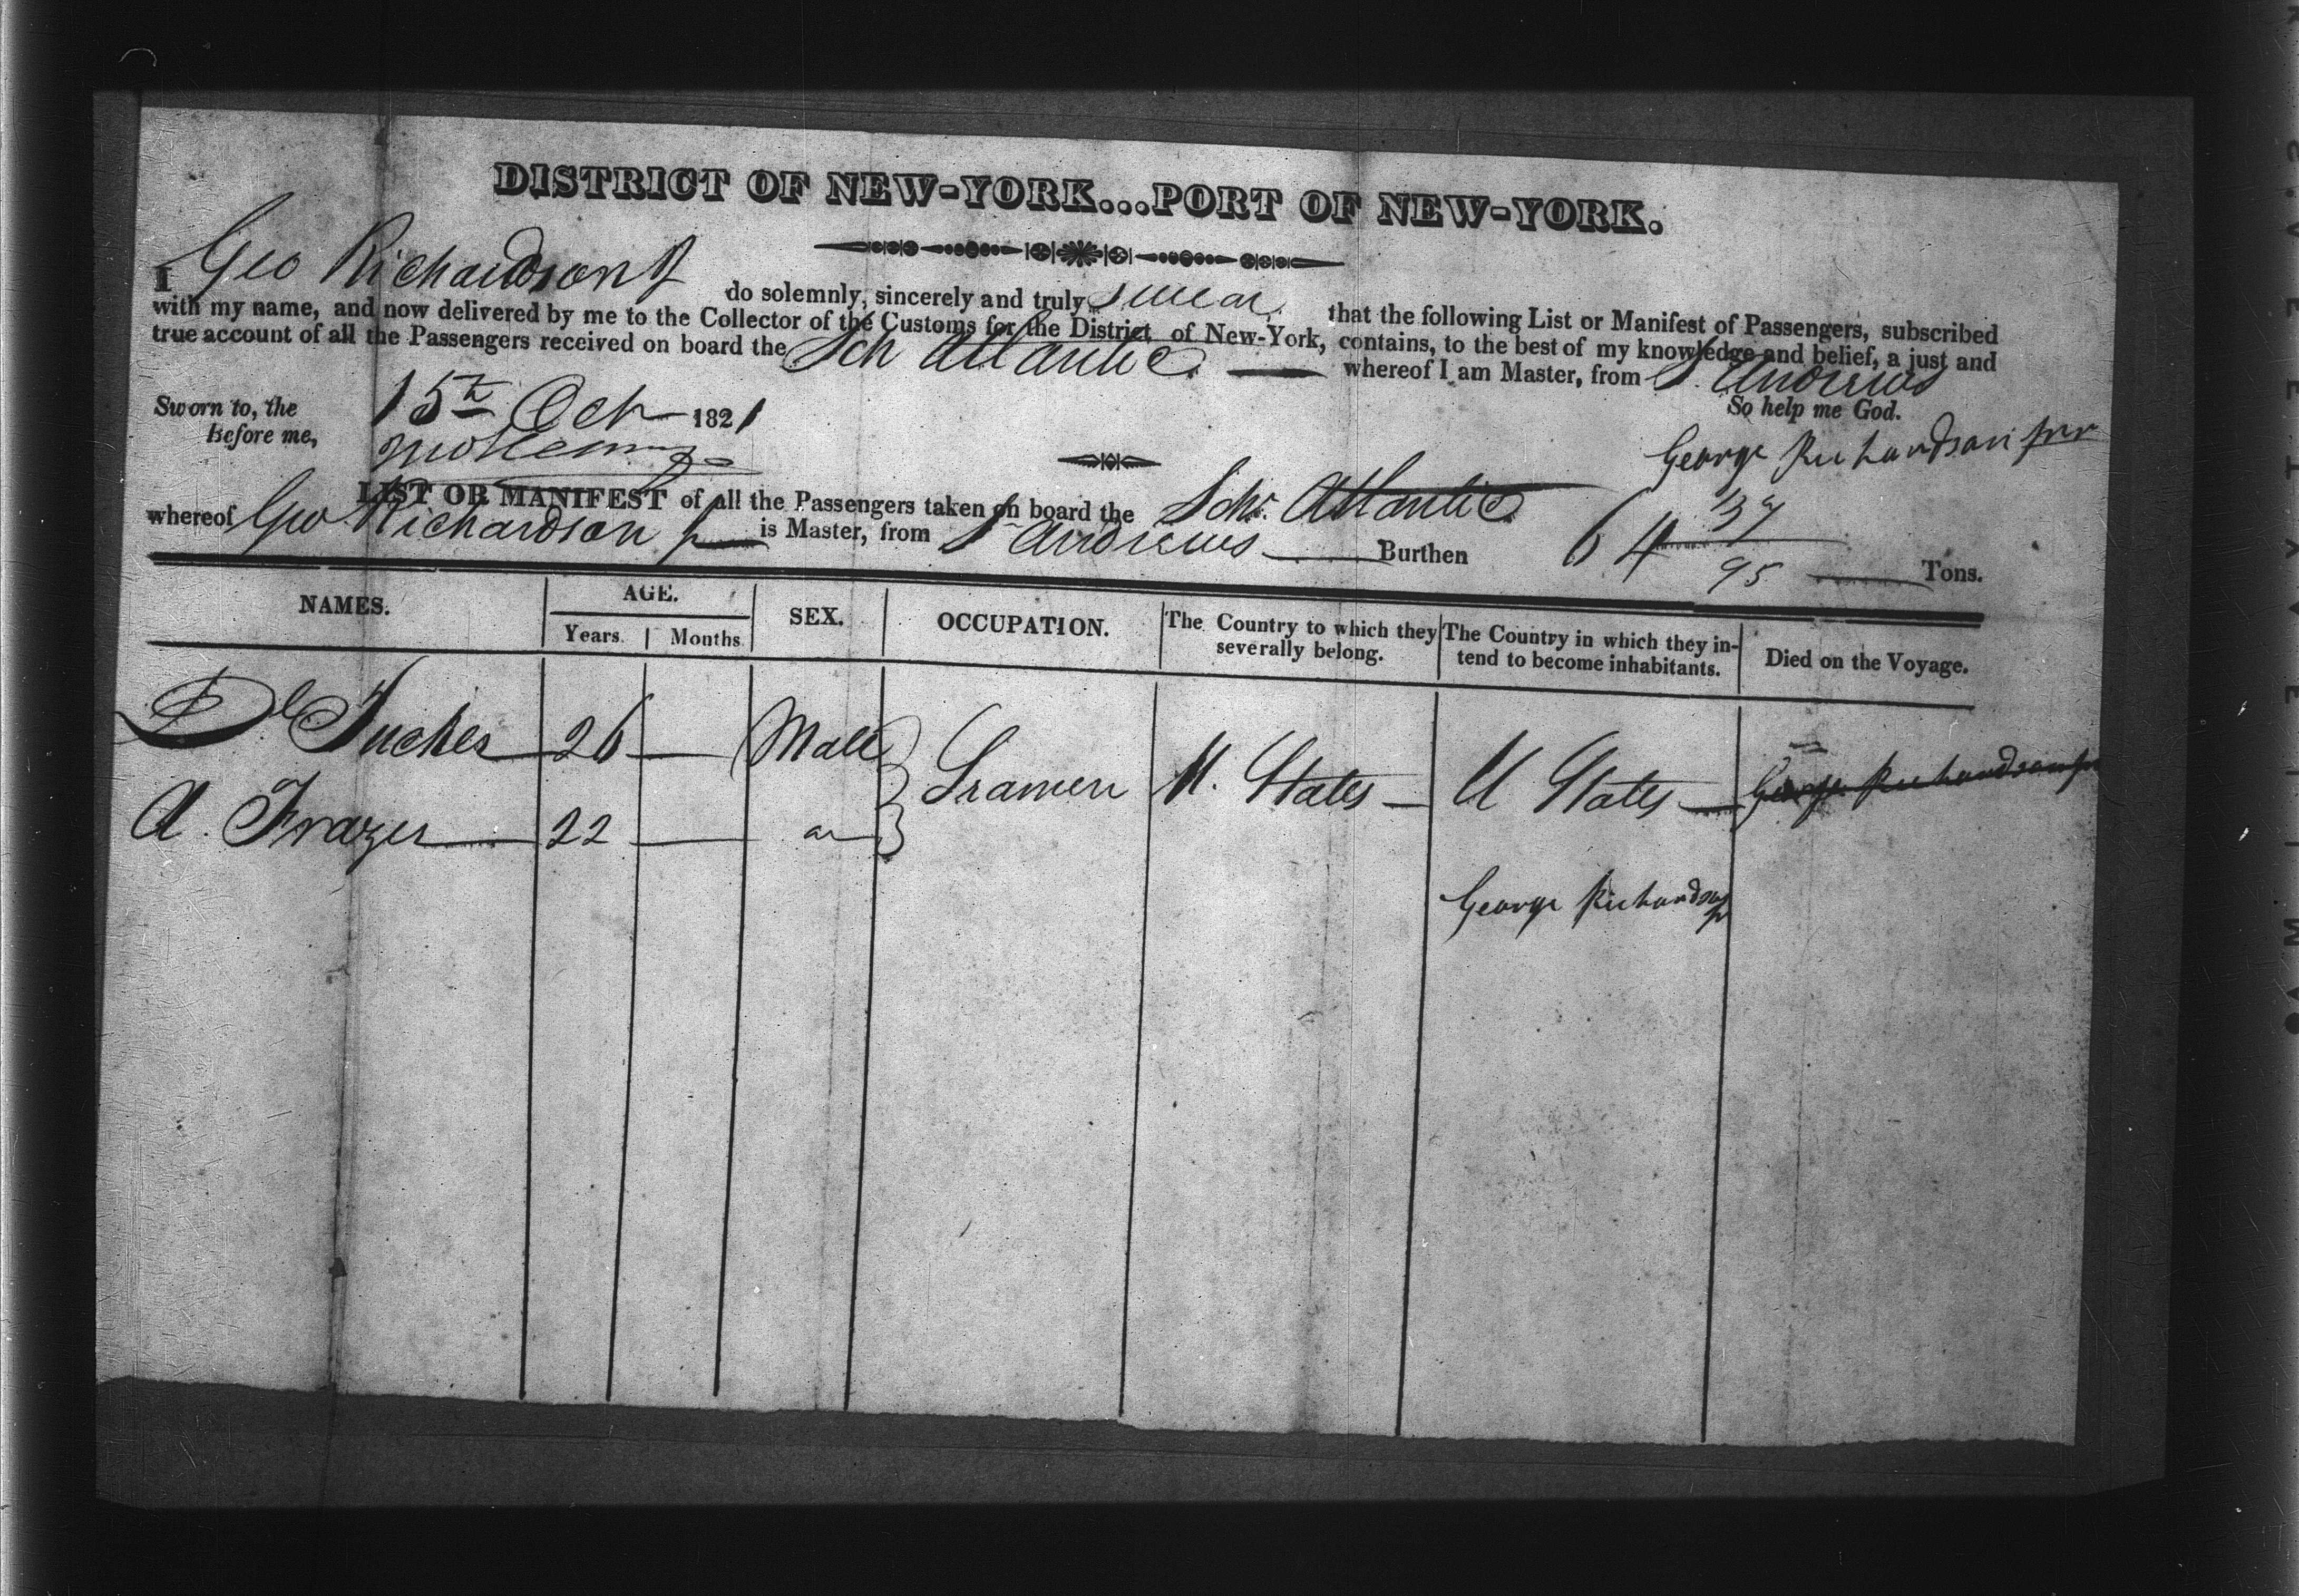 DISTRICT OF NEW-YORK...PORT OF NEW-YORK.
I Geo Richardson Jr do solemnly, sincerely and truly swear that the following List or Manifest of Passengers, subscribed
with my name, and now delivered by me to the Collector of the Customs for the District of New-York, contains, to the best of my knowledge and belief, a just and
true account of all the Passengers received on board the Sch Atlantic whereof I am Master, from St. Andrews
Sworn to, the 15th Oct 1821 So help me God.
Before me,
George Richardson jnr
LIST OR MANIFEST of all the Passengers taken on board the Schr. Atlantic
whereof Geo Richardson Jr is Master, from St Andrews Burthen 64 37/95 Tons.
NAMES. AGE. SEX. OCCUPATION. The Country to which they severally belong. The Country in which they intend to become inhabitants. Died on the Voyage.
Years. Months
26 — Male Seamen U. States — U States — George Richardson jr
A. Frazer 22 —
George Richardson jr